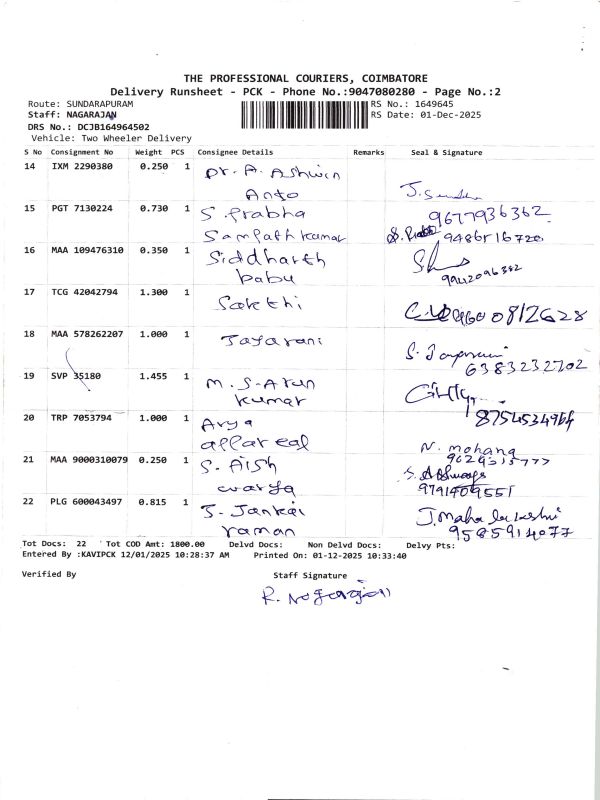 THE PROFESSIONAL COURIERS, COIMBATORE
Delivery Runsheet - PCK - Phone No.:9047080280 - Page No.:2
Route: SUNDARAPURAM
RS No.: 1649645
Staff: NAGARAJAN
RS Date: 01-Dec-2025
DRS No.: DCJB164964502
Vehicle: Two Wheeler Delivery
S No Consignment No Weight PCS Consignee Details Remarks Seal & Signature
14 IXM 2290380 0.250 1 Dr. A. Ashwin
Anto
15 PGT 7130224 0.730 1 S. Prabha 9677936362
Sampath kumar
16 MAA 109476310 0.350 1 Siddharth
babu
17 TCG 42042794 1.300 1 Sakthi
18 MAA 578262207 1.000 1 Jayarani
6383232702
19 SVP 35180 1.455 1 M.S-Arun
kumar
20 TRP 7053794 1.000 1 Arya 8754534964
appareal N. mohana
21 MAA 9000310079 0.250 1 S. Aish
warya 9791409551
22 PLG 600043497 0.815 1 J. Jankai J. Maha lakshmi
raman 9585914077
Tot Docs: 22 Tot COD Amt: 1800.00 Delvd Docs: Non Delvd Docs: Delvy Pts:
Entered By :KAVIPCK 12/01/2025 10:28:37 AM Printed On: 01-12-2025 10:33:40
Verified By Staff Signature
R. Nagarajan